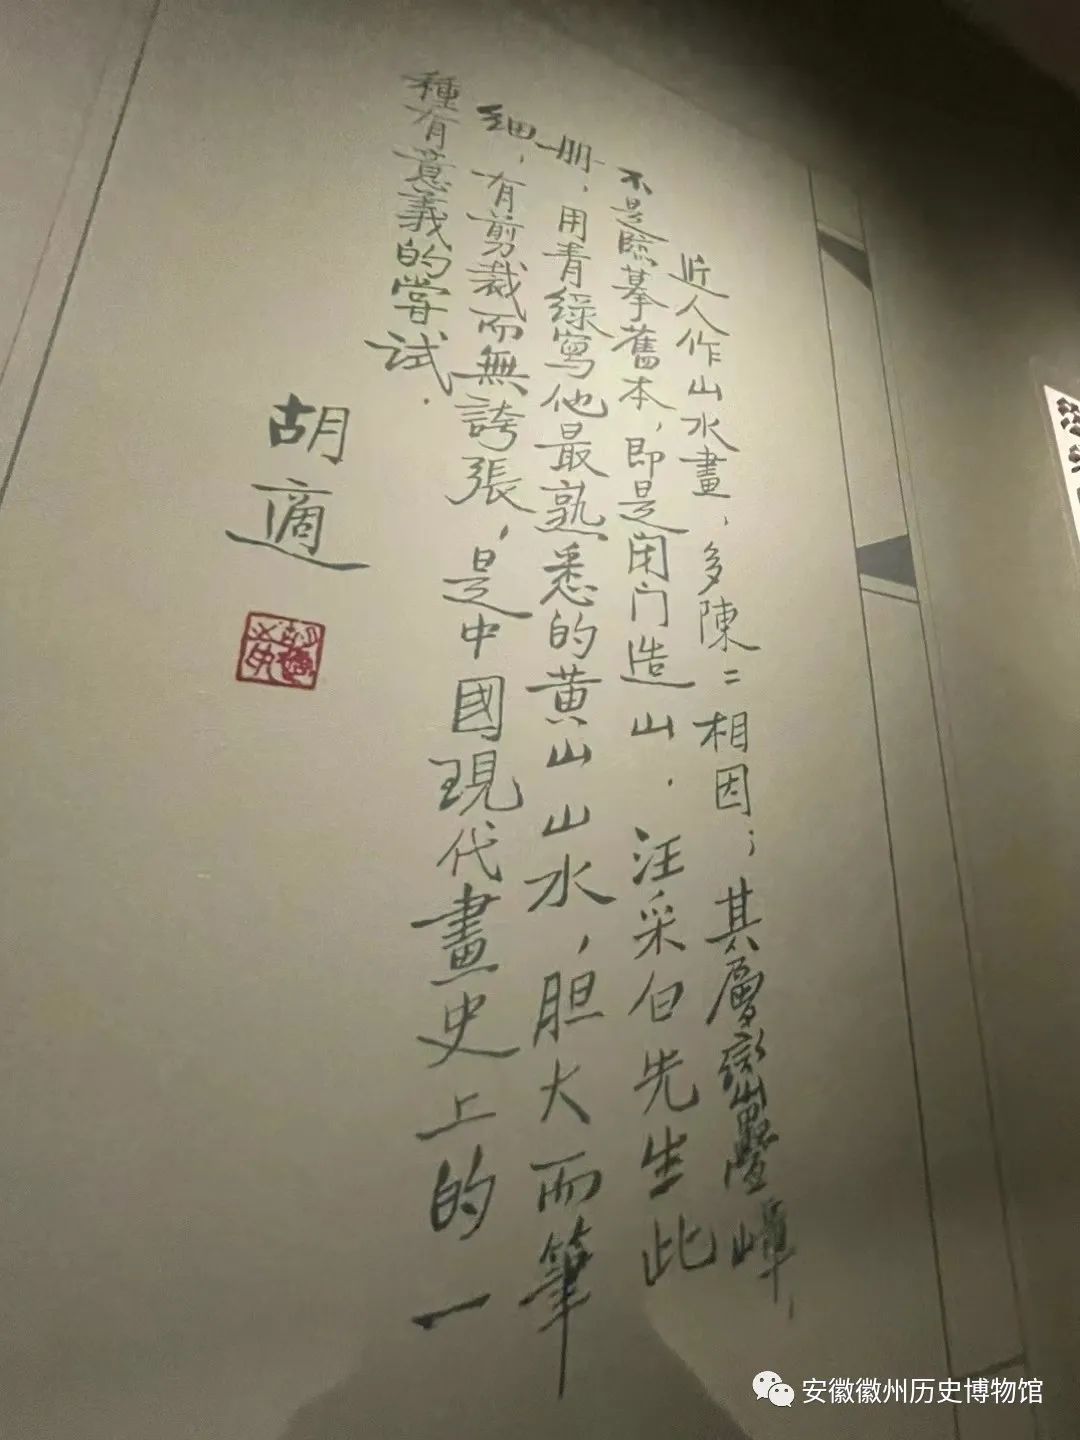 近人作山水畫，多陳〻相因；其層巒疊嶂，
不是臨摹舊本，即是闭门造山．汪采白先生此
册，用青綠寫他最熟悉的黄山山水，胆大而筆
细，有剪裁而無誇張，是中國現代畫史上的一
種有意義的嘗试．
胡適
安徽徽州历史博物馆